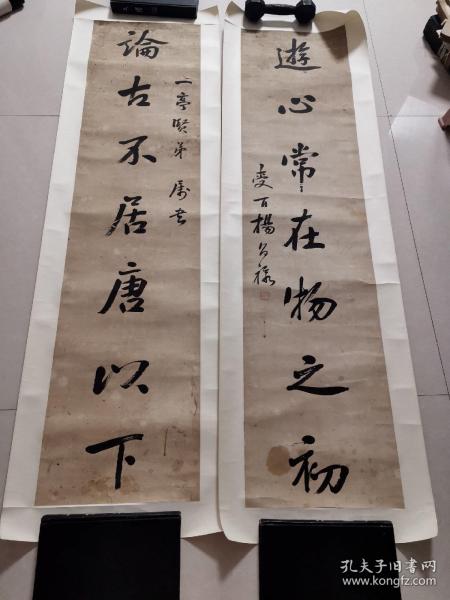 遊心常在物之初
論古不居唐以下
二亭賢弟 屬書
燮百楊
孔夫子旧书网
www.kongfz.com